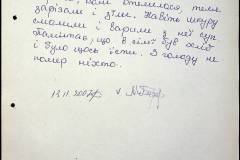 нам отелилося, теля
зарізали і з'їли. Навіть шкуру
смалили і варили з неї суп.
Пам'ятаю, що в селі був хліб
і було щось їсти. З голоду не
помер ніхто.
13.11.2007р